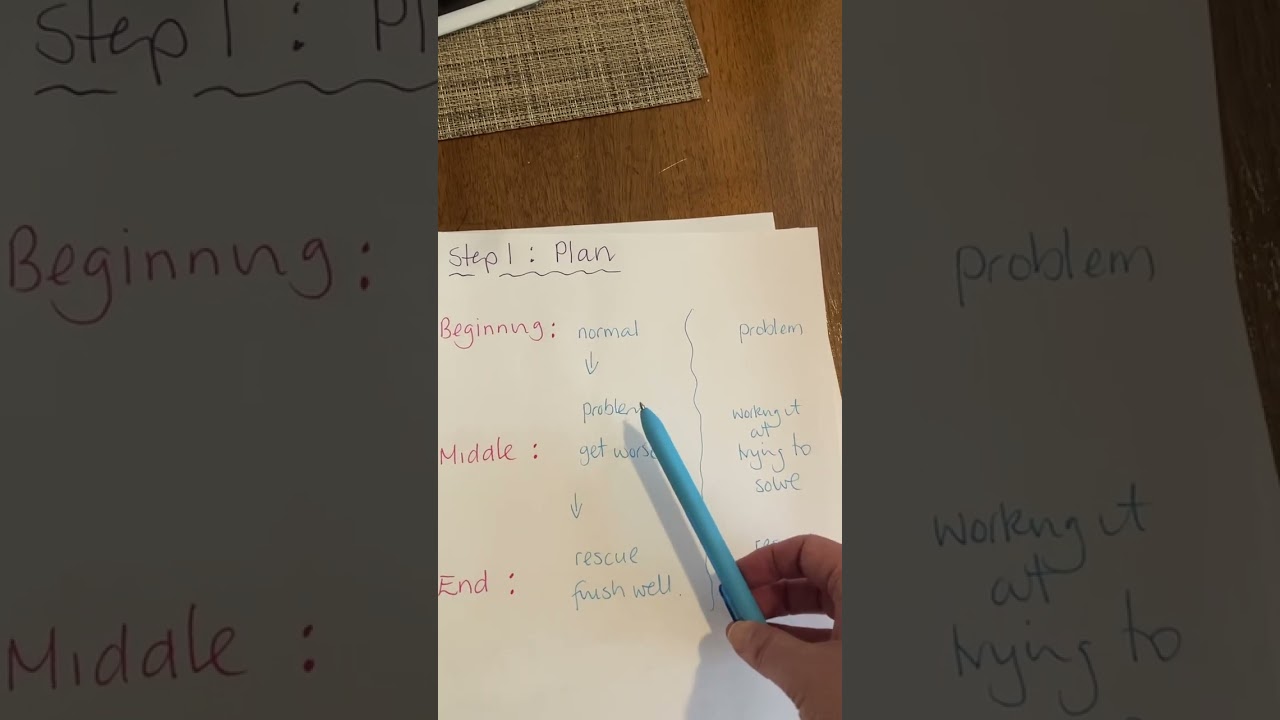 Step 1 : Plan
Beginning : normal
↓
problem
Middle : get worse
↓
rescue
End : finish well.
problem
working it
at
trying to
solve